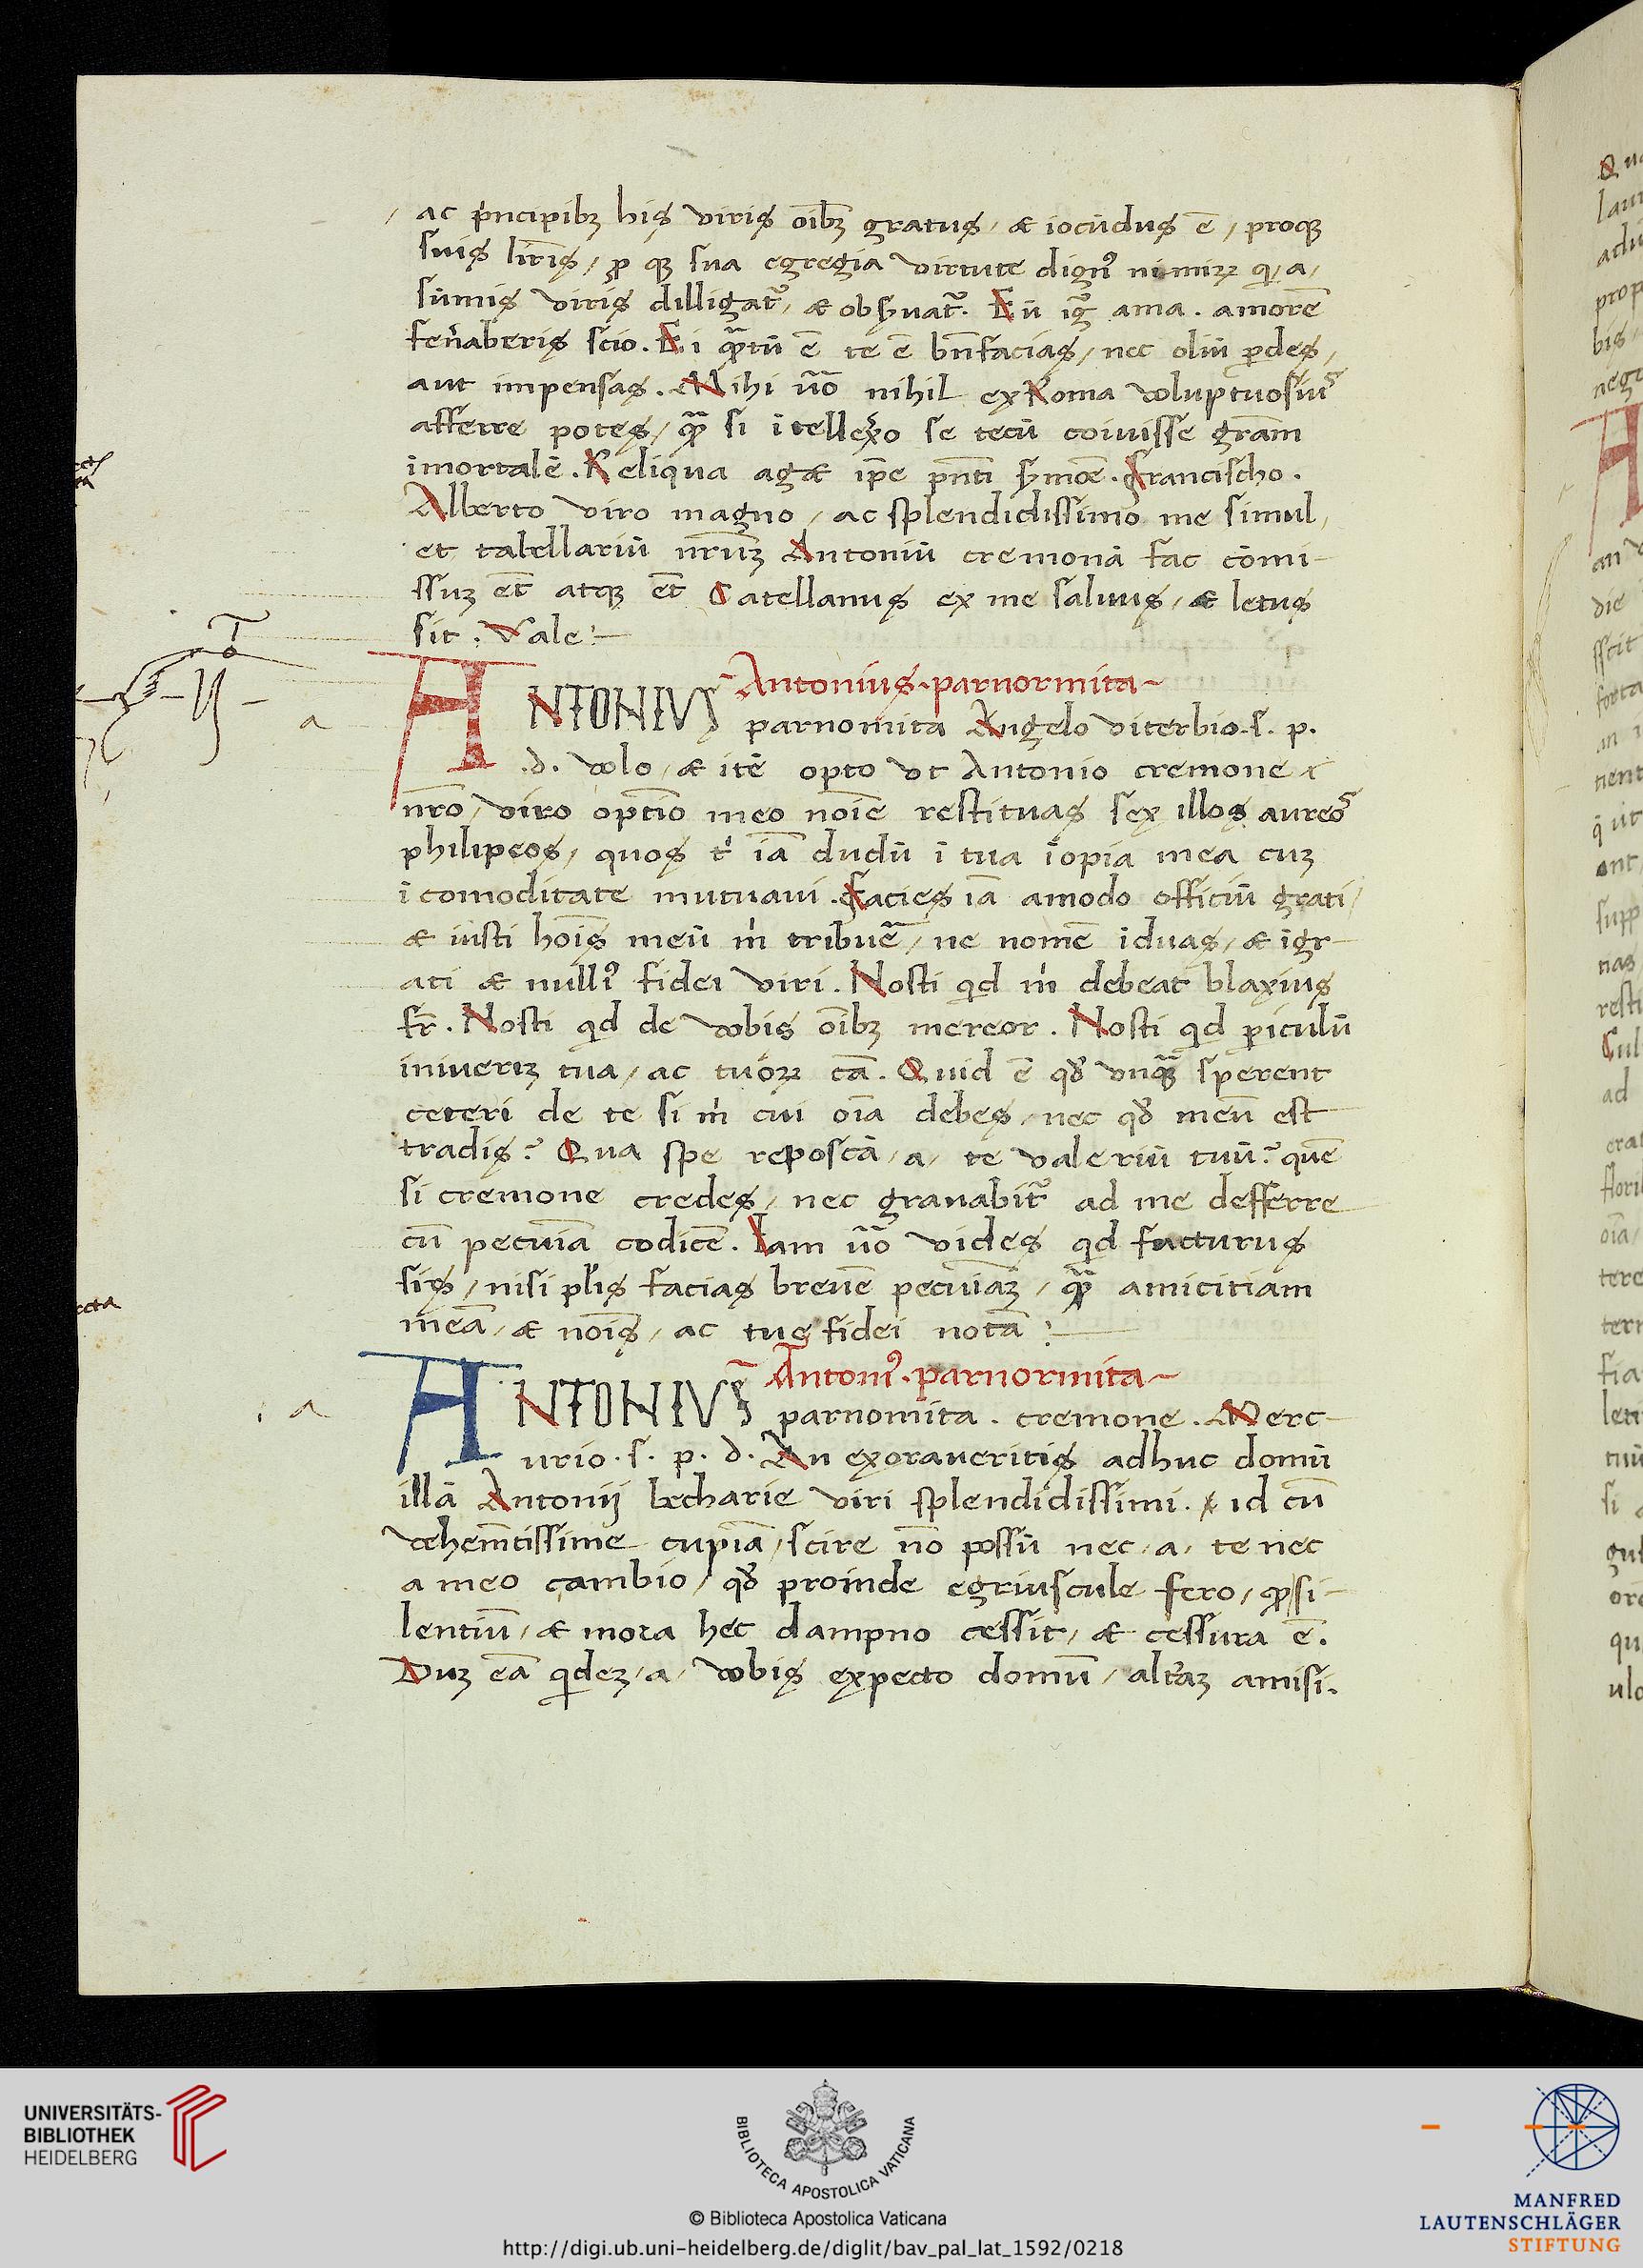 ac pͥncipibꝫ his viris oībꝫ gratus / & iocūdus ē / proqꝫ
suis lr̄is / ꝓ qꝫ sua egregia virtute dignꝰ nimiꝝ qͥ / a /
sūmis viris dilligat᷑ / & obsꝰuat᷑. Eū igͣ ama. amorē
fen̄aberis scio. Ei qͣꝫtū ē te ē bn̄facias / nec oliū ꝑdes /
aut impensas. Mihi ūo nihil ex Roma voluptuosiuꝰ
afferre potes / qͣꝫ si ītellexͦo se tecū coivisse gram̄
imortalē. Reliqua agæ ip̄e pn̄ti sꝰmoē. Francischo.
Alberto viro magno / ac splendidissimo me simul /
et tabellariū nr̄uꝫ Antoniū cremonā fac cōmi-
ssuꝫ et̄ atqꝫ et̄ Catellanus ex me saluus / & letus
sit. Vale :-
Antonius. parnormita
ANTONIVS parnomita Angelo viterbio. s. p.
.d. volo / & itē opto vt Antonio cremone
nr̄o / viro optīo meo noīe restituas sex illos aureoꝰ
philipeos / quos tͥ iā dudū ī tua īopia mea cuꝫ
īcomoditate mutuaui. Facies iā amodo officiū grati /
& iusti hoīs meū mͥ tribuē / ne nomē īduas / & īgr-
ati & nulliꝰ fidei viri. Nosti qͥd mͥ debeat blaxius
fr̄. Nosti qͥd de vobis oībꝫ mereor. Nosti qͥd ꝑiculū
iniuerīꝫ tua / ac tuoꝝ cā. Quid ē qd̄ vnqͣꝫ sperent
ceteri de te si mͥ cui oīa debes / nec qd̄ meū est
tradis? Qua spe reposcā / a / te valeriū tuū? quē
si cremone credes / nec grauabit᷑ ad me defferre
cū pecuīa codicē. Iam ūo vides qͥd facturus
sis / nisi pl̄is facias breuē pecuīaꝫ / qͣꝫ amicitiam
meā / & noīs / ac tue fidei notā :-
Antoniꝰ. parnormita
ANTONIVS parnomita. cremone. Merc-
urio. s. p. d. An exoraueritis adhuc domū
illā Antonij becharie viri splendidissimi. id cū
vehem̄tissime cupiā / scire nō possū nec / a / te nec
a meo cambio / qd̄ proinde egriuscule fero / qꝫ si-
lentiū / & mora hec dampno cessit / & cessura ē.
Duꝫ eā qͥdeꝫ / a / vobis expecto domū / alt̄aꝫ amisi.
a
. a
UNIVERSITÄTS-
BIBLIOTHEK
HEIDELBERG
BIBLIOTECA APOSTOLICA VATICANA
© Biblioteca Apostolica Vaticana
http://digi.ub.uni-heidelberg.de/diglit/bav_pal_lat_1592/0218
MANFRED
LAUTENSCHLÄGER
STIFTUNG